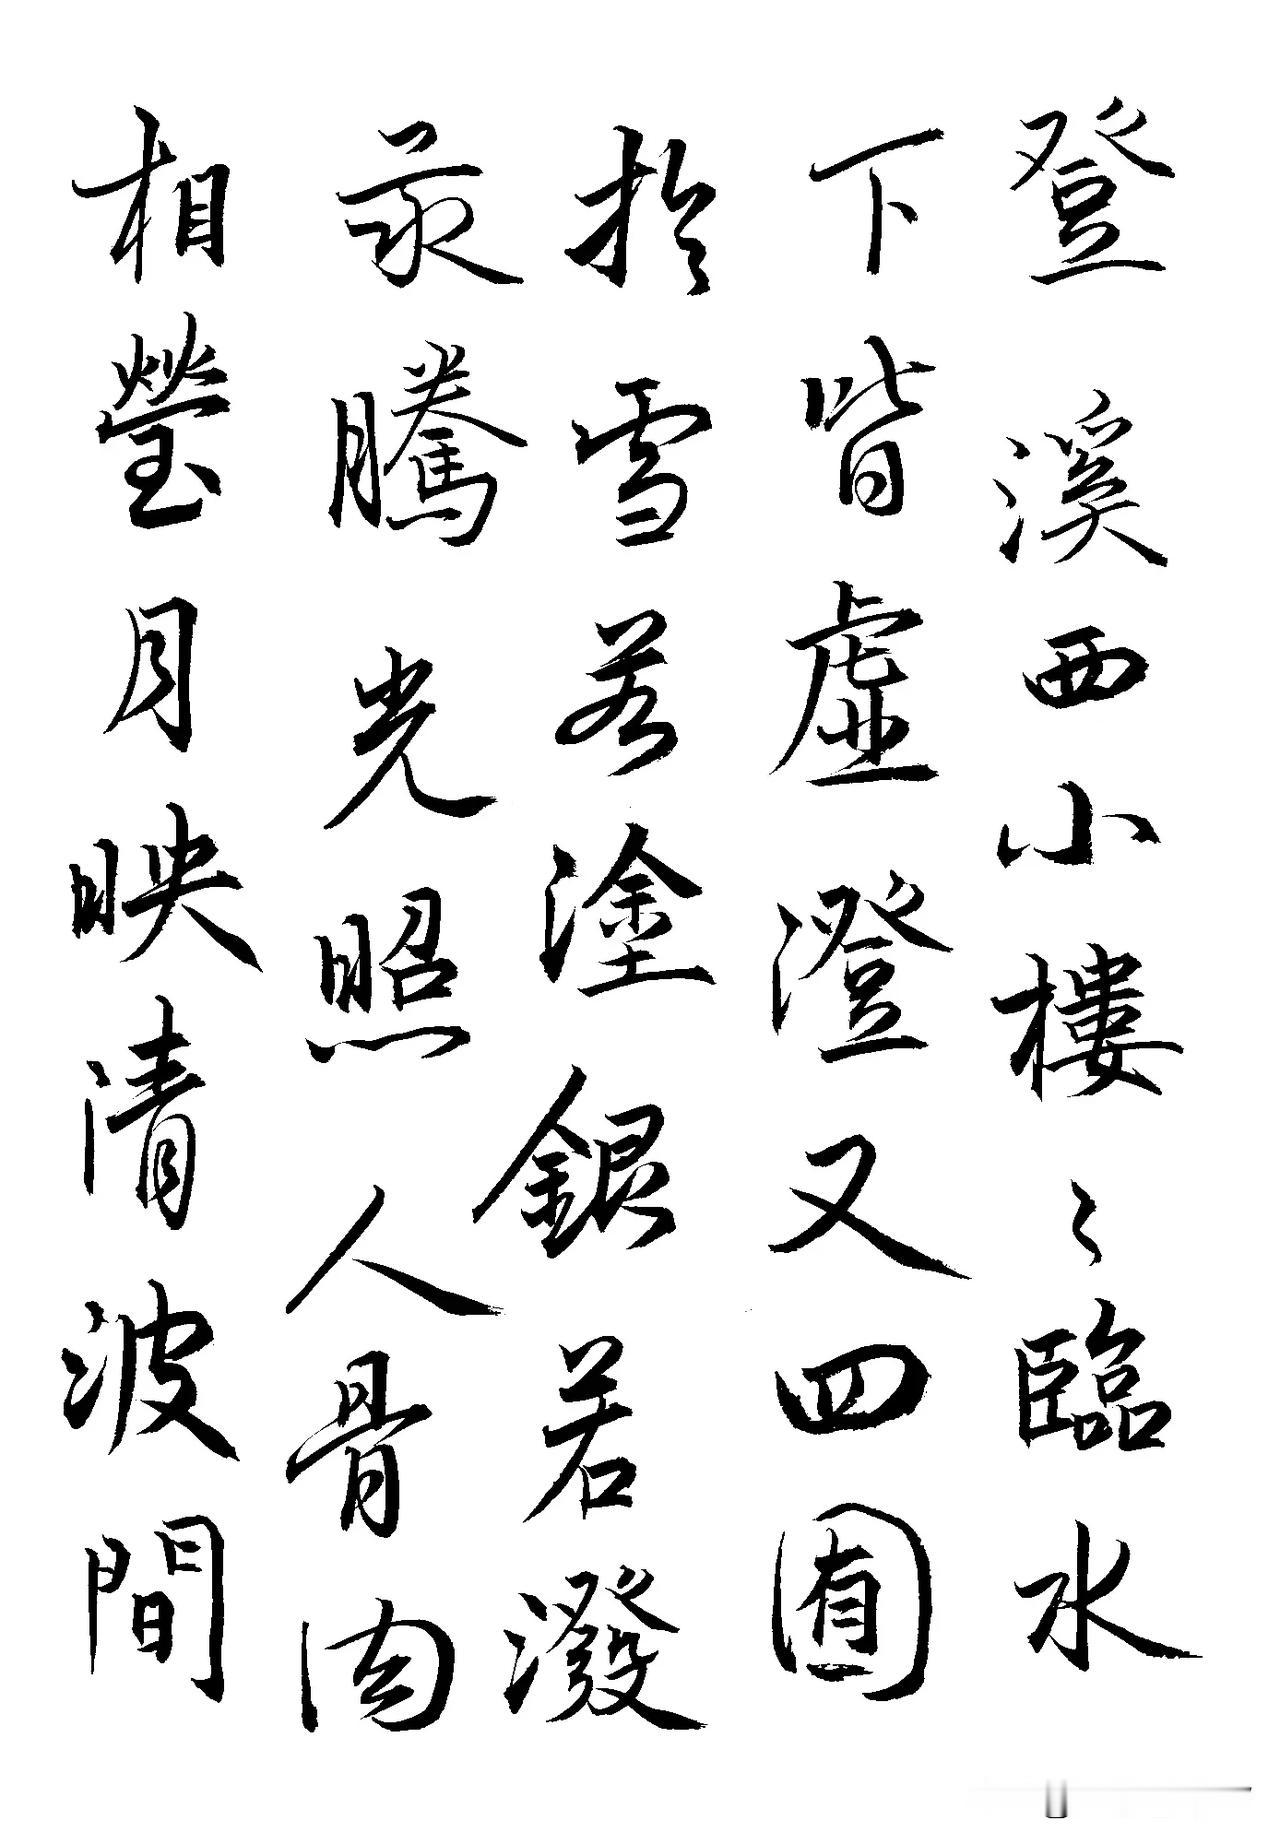 登溪西小樓〻臨水
下皆虛澄又四
於雪若塗銀若潑
汞騰光照人骨肉
相瑩月映清波間